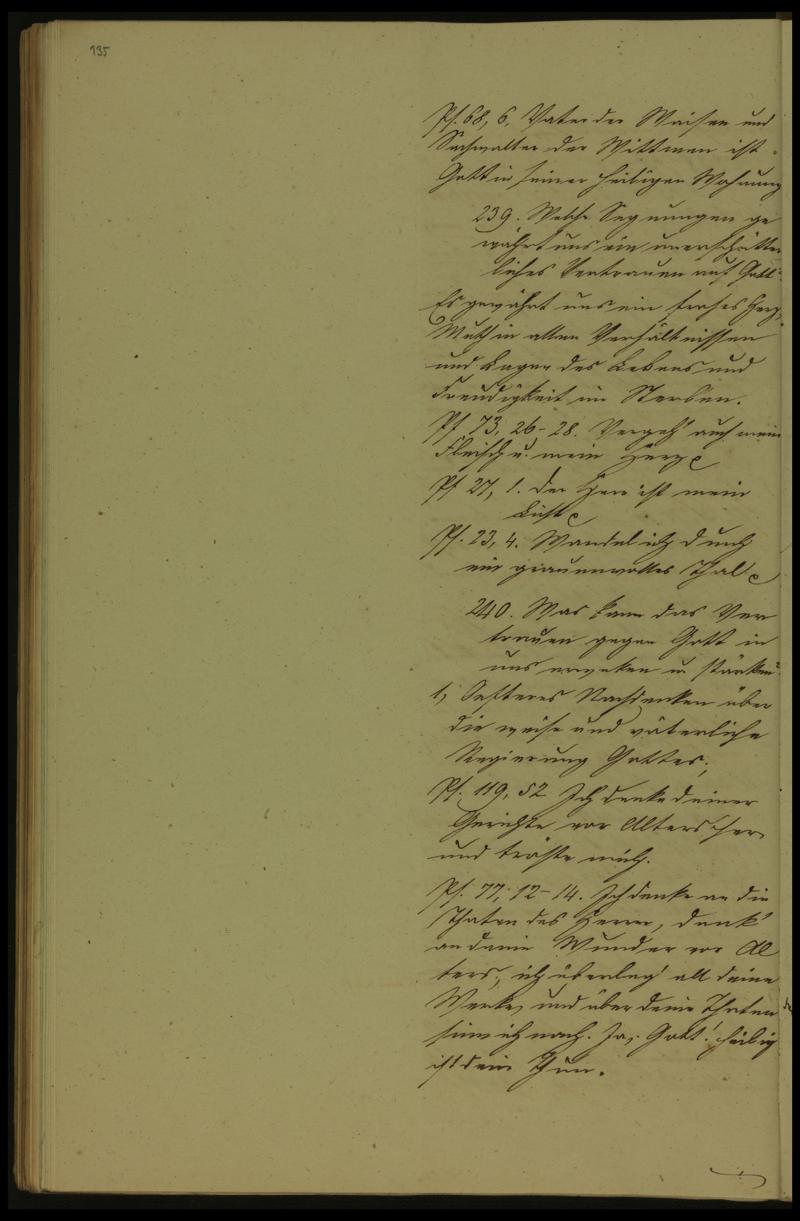 135
Ps. 68, 6. Vater der Waisen und
Sachwalter der Wittwen ist
Gott in seiner heiligen Wohnung
239. Welche Segnungen ge
währt uns ein unerschütter
liches Vertrauen auf Gott?
Es gewährt uns ein frohes Herz,
Muth in allen Verhältnissen
und Lagen des Lebens und
Freudigkeit im Sterben.
Ps 73, 26-28. Vergeh' auch mein
Fleisch u. mein Herz
Ps 27, 1. Der Herr ist mein
Licht
Ps. 23, 4. Wandel ich durch
ein grauenvolles Thal
240. Was kann das Ver
trauen gegen Gott in
uns erweken u. stärken?
1, Oefteres Nachdenken über
die weise und väterliche
Regierung Gottes;
Ps. 119, 52 Ich denke deiner
Gerichte vor Alters her
und tröste mich.
Ps. 77, 12-14. Ich denke an die
Thaten des Herrn, denk'
an deine Wunder vor Al
ters, ich überleg' all deine
Werke, und über deine Thaten
sinn ich nach. Ja, Gott! heilig
ist dein Thun.